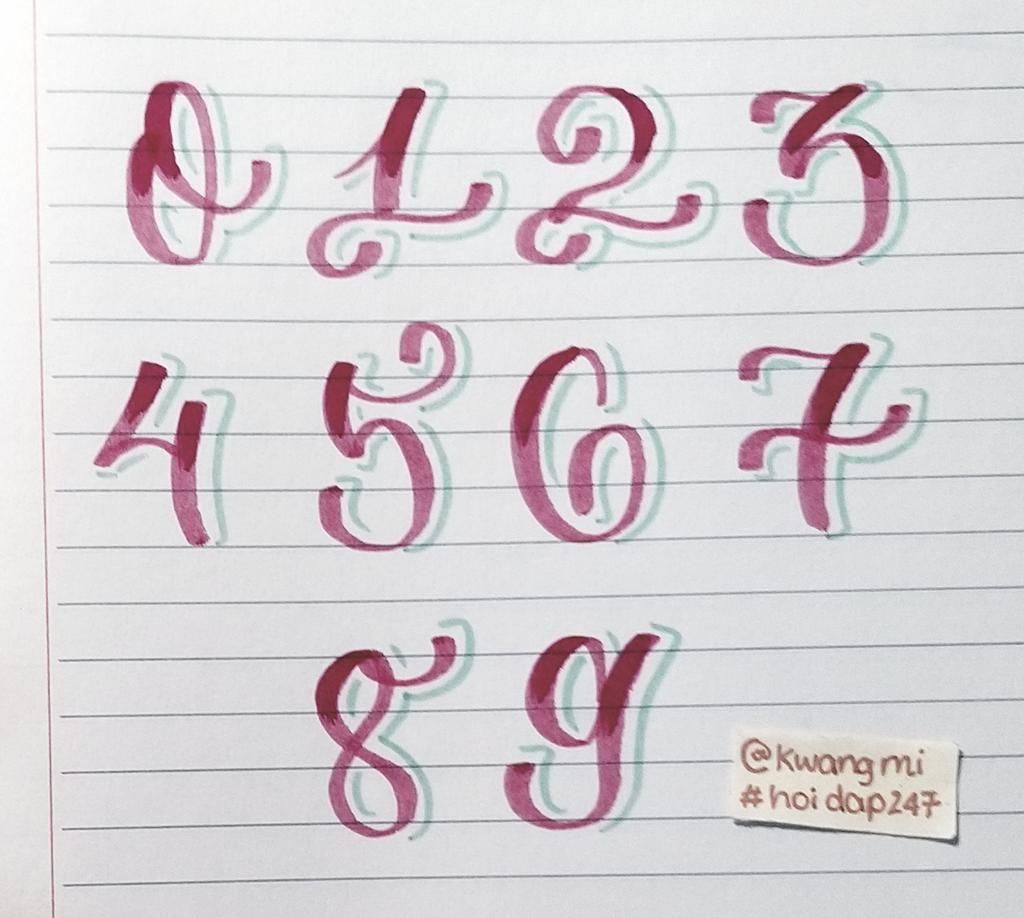 0 1 2 3
4 5 6 7
8 9
@kwangmi
#hoidap247